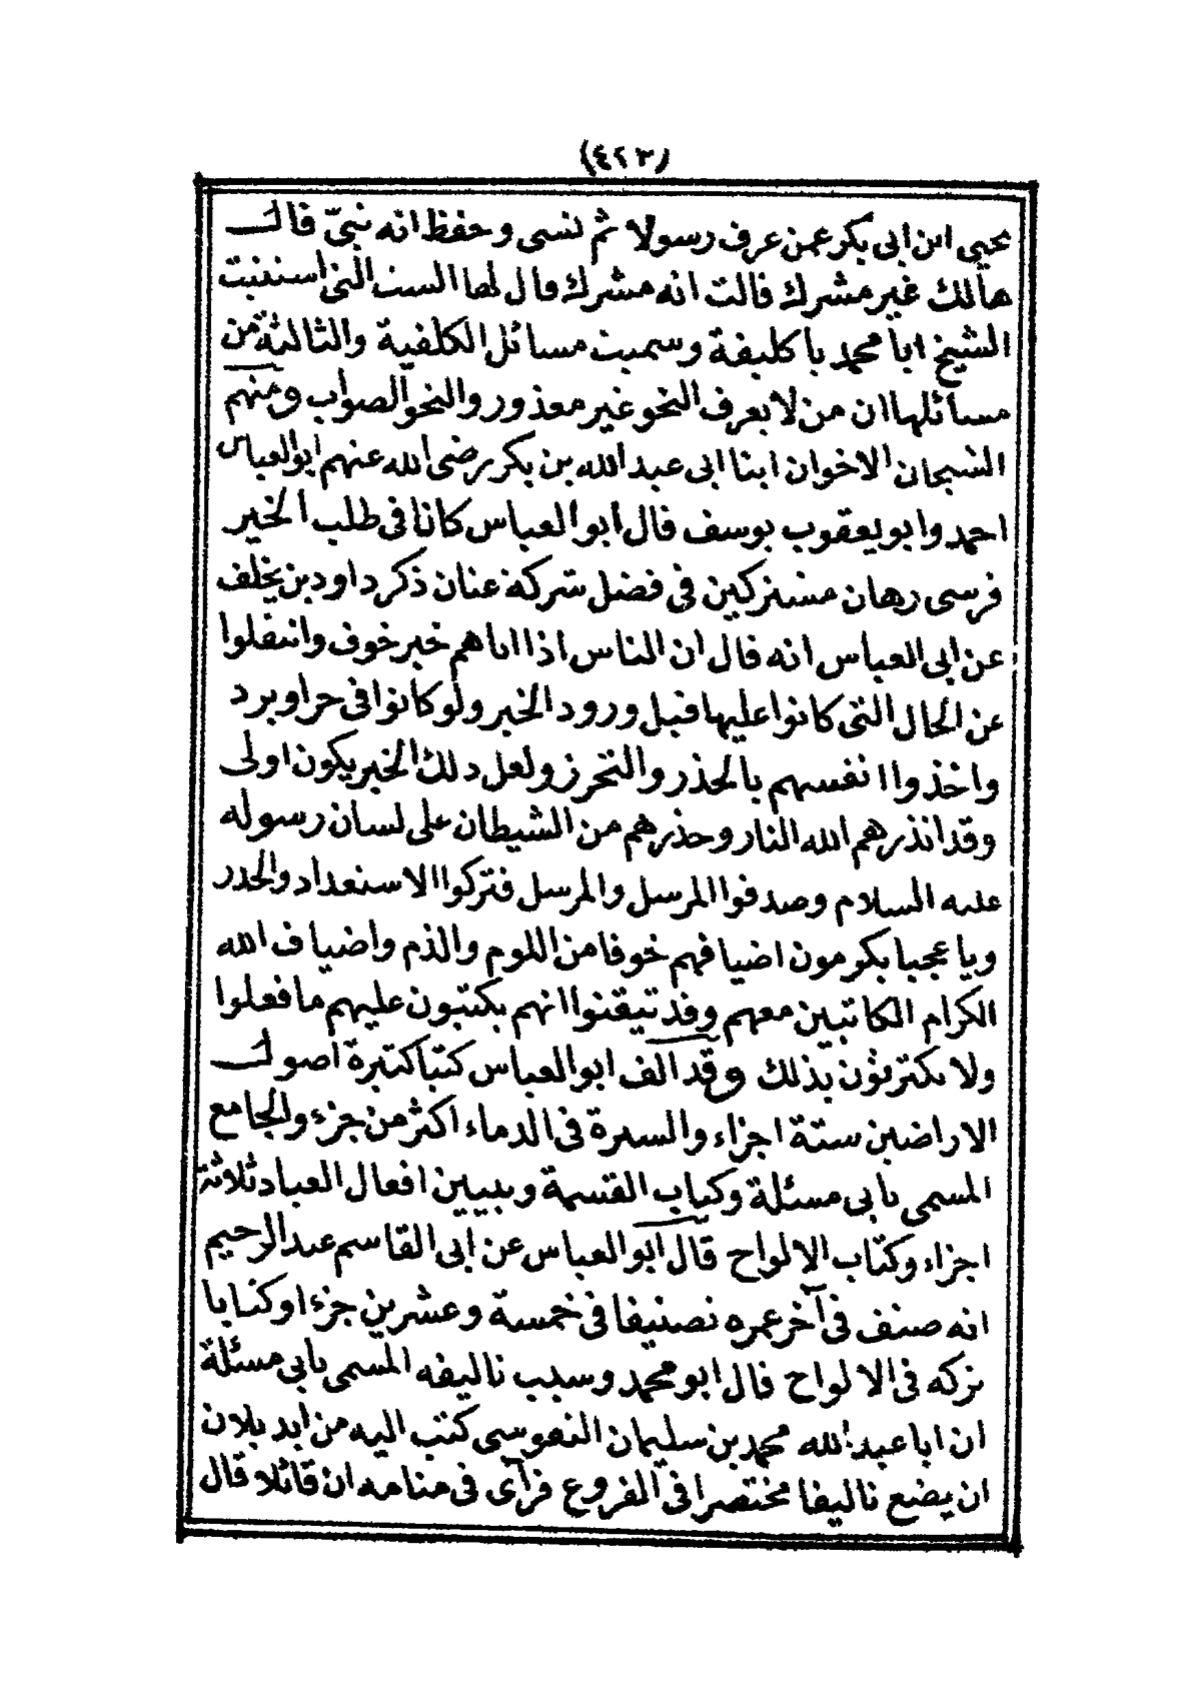 (٤٢٣)
يحيى ابن ابى بكر عمن عرف رسولا ثم نسى وحفظ انه نبىّ قالـــ
هالك غير مشرك قالت انه مشرك قال لها الست التى استنبت
الشيخ ابا محمد با كليفة وسميت مسائل الكلفية والثالثة من
مسائلها ان من لا يعرف النحو غير معذور والنحو الصواب ومنهم
الشيخان الاخوان ابنا ابى عبد الله بن بكر رضى الله عنهم ابو العباس
احمد وابو يعقوب يوسف قال ابو العباس كانا فى طلب الخير
فرسى رهان مشتركين فى فضل شركة عنان ذكر داود بن يخلف
عن ابى العباس انه قال ان الناس اذا اتاهم خبر خوف وانتقلوا
عن الحال التى كانوا عليها قبل ورود الخبر ولو كانوا فى حر او برد
واخذوا انفسهم بالحذر والتحرز ولعل ذلك الخبر يكون اولى
وقد انذرهم الله النار وحذرهم من الشيطان على لسان رسوله
عليه السلام وصدقوا المرسل والمرسل فتركوا الاستعداد والحذر
ويا عجبا يكرمون اضيافهم خوفا من اللوم والذم واضياف الله
الكرام الكاتبين معهم وقد تيقنوا انهم يكتبون عليهم ما فعلوا
ولا يكترثون بذلك وقد الف ابو العباس كتبا كثيرة اصولـــ
الاراضين ستة اجزاء والسيرة فى الدماء اكثر من جزء والجامع
المسمى بابى مسئلة وكتاب القسمة وتبيين افعال العباد ثلاثة
اجزاء وكتاب الالواح قال ابو العباس عن ابى القاسم عبد الرحيم
انه صنف فى آخر عمره تصنيفا فى خمسة وعشرين جزءا وكتابا
تركه فى الالواح قال ابو محمد وسبب تاليفه المسمى بابى مسئلة
ان ابا عبد الله محمد بن سليمان النفوسى كتب اليه من ابديلان
ان يضع تاليفا مختصرا فى الفروع فرآى فى منامه ان قائلا قال